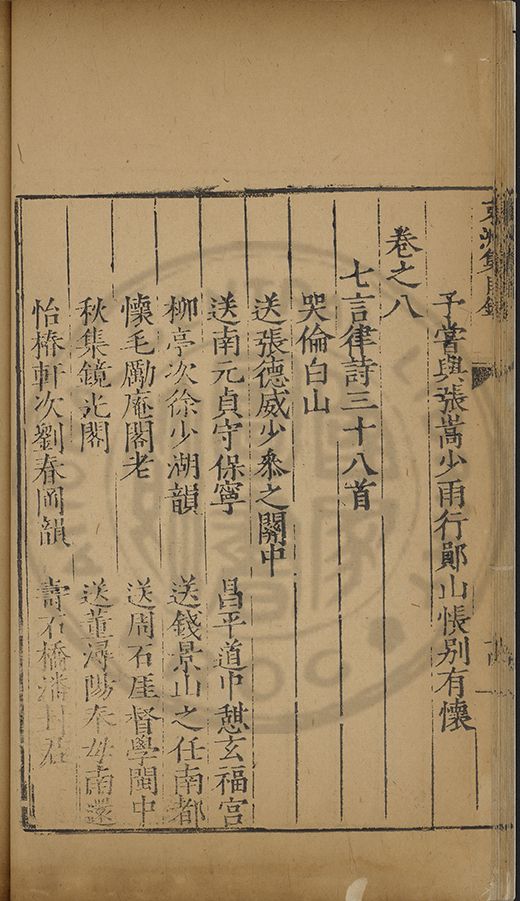 子嘗與張嵩少雨行鄖山悵别有懷
卷之八
七言律詩三十八首
哭倫白山
送張德威少叅之關中
送南元貞守保寧　昌平道中憇玄福宫
柳亭次徐少湖韻　送錢景山之任南都
懷毛勵庵閣老　送周石崖督學閩中
秋集鏡光閣　送董潯陽奉母南還
怡椿軒次劉春岡韻　壽石橋潘封君